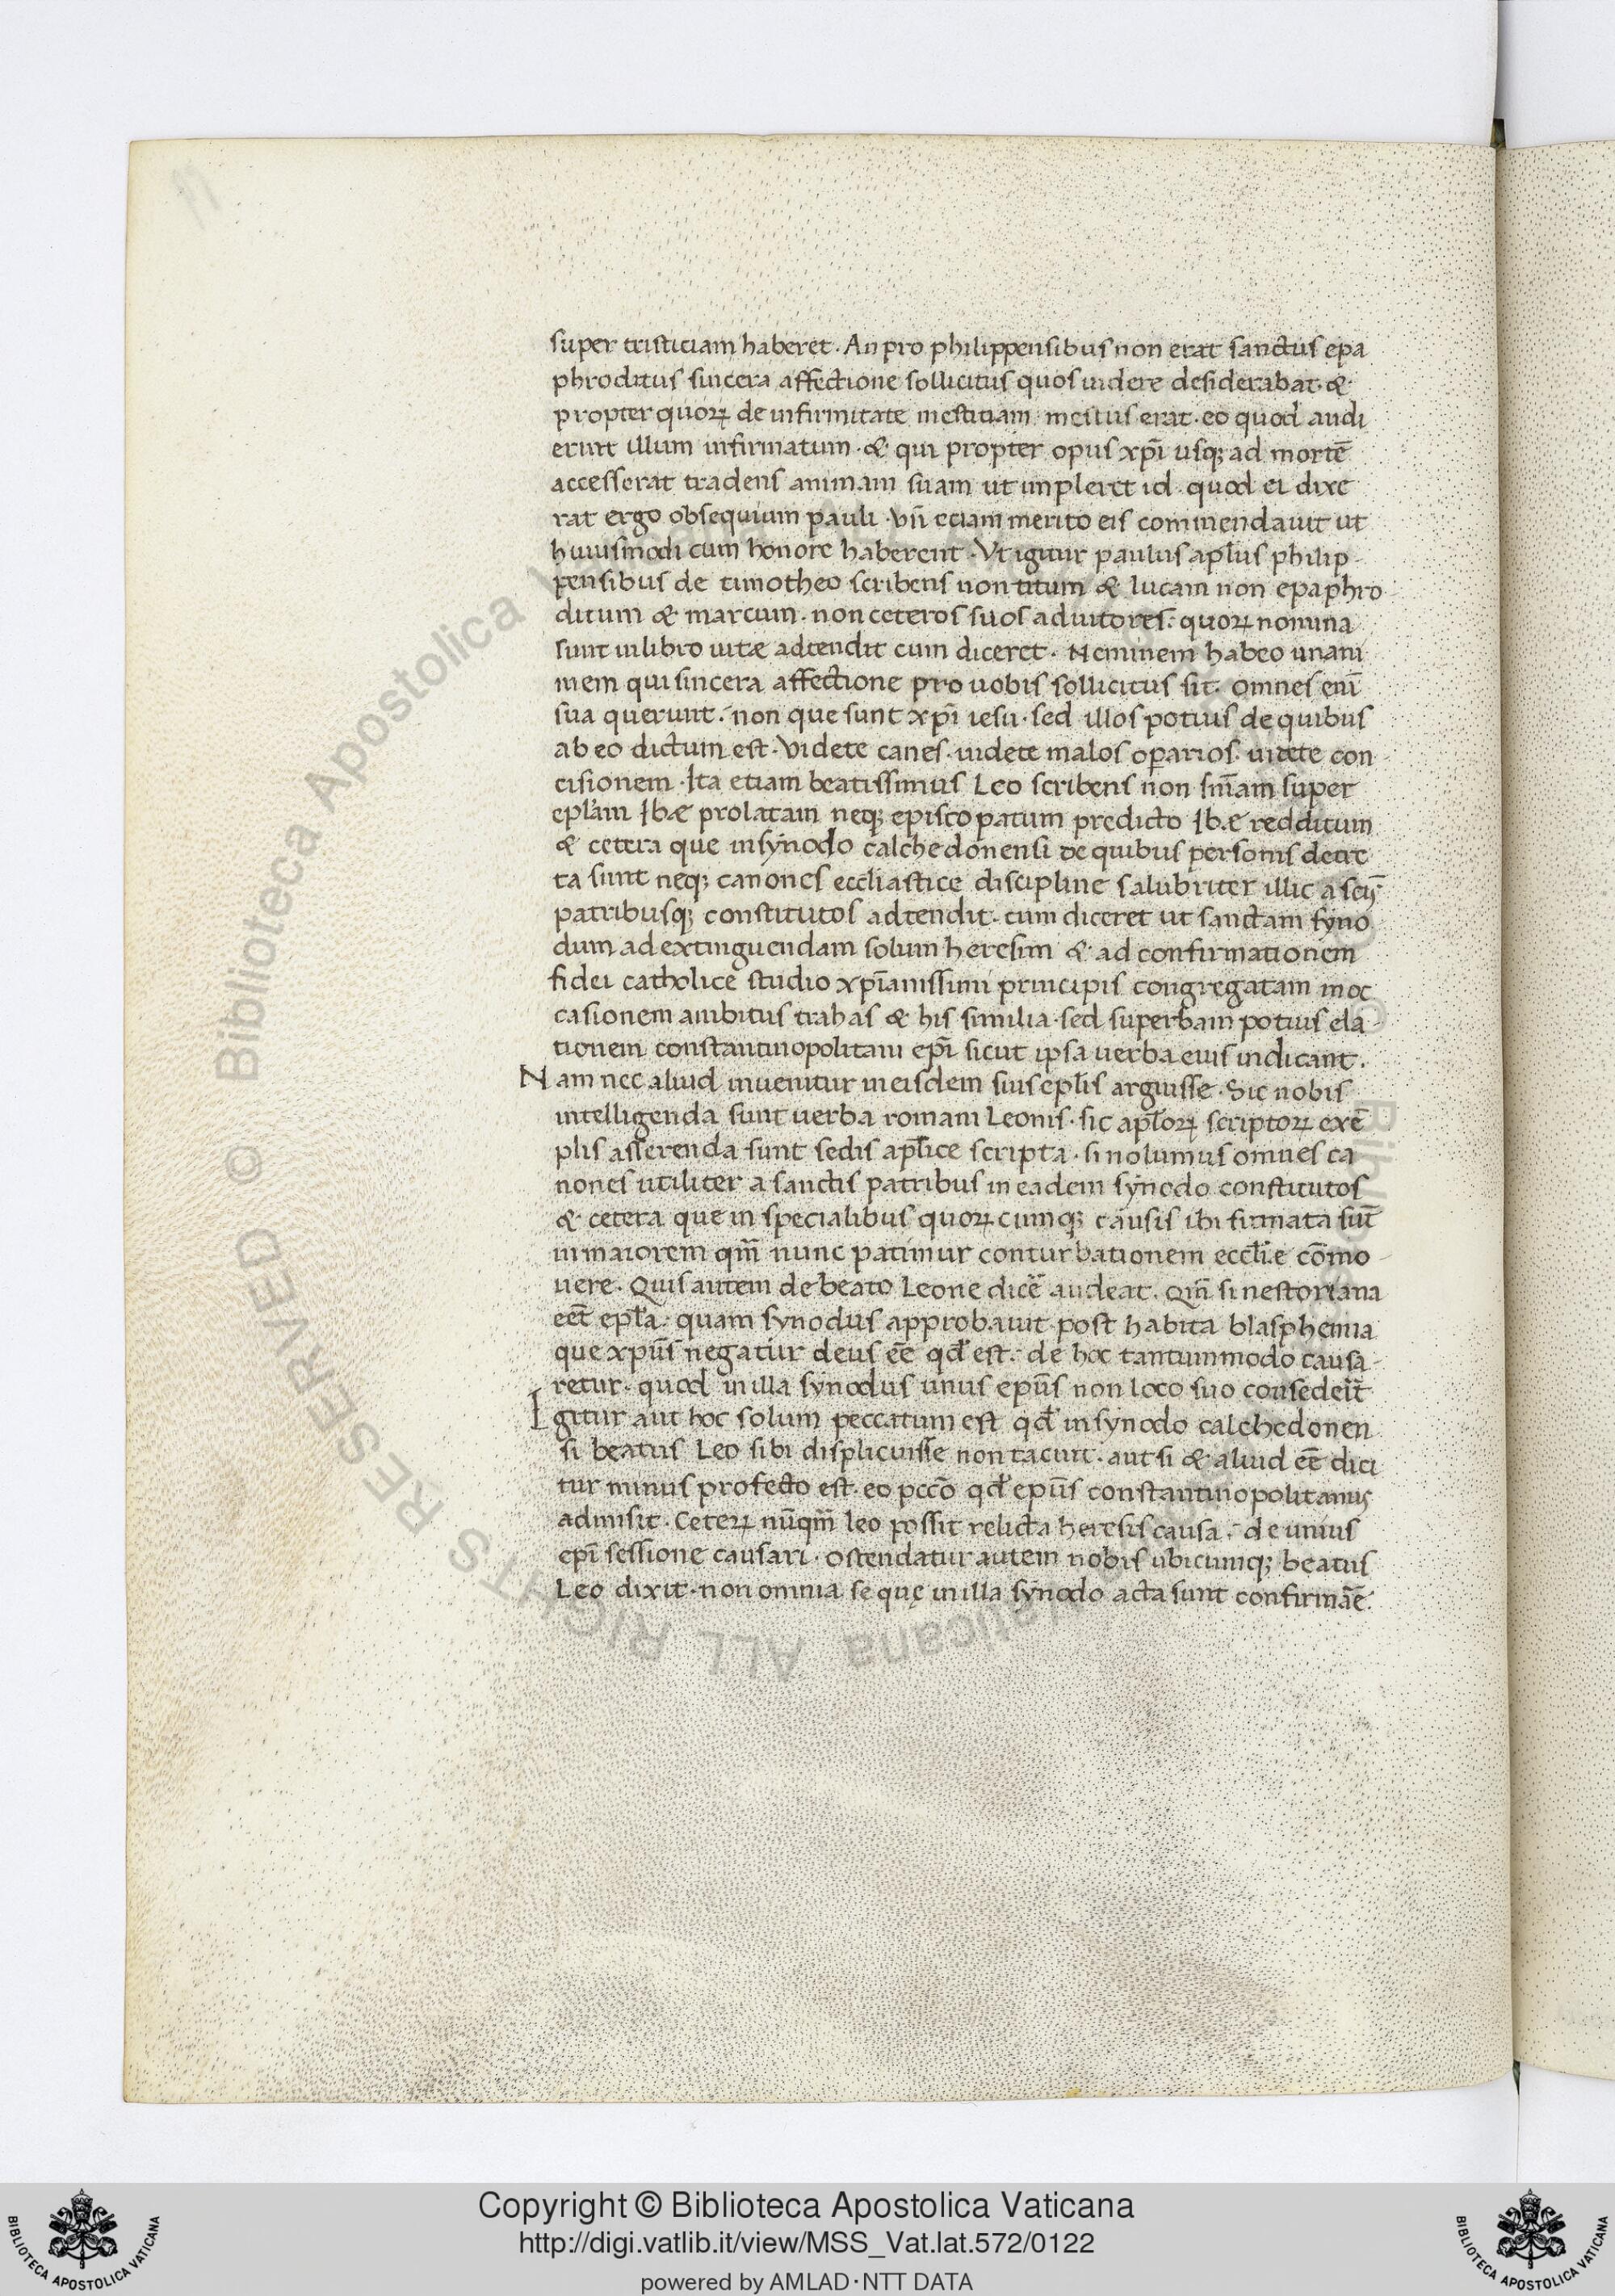 super tristiciam haberet. An pro philippensibus non erat sanctus epa
phroditus sincera affectione sollicitus quos uidere desiderabat. &
propter quoꝝ de infirmitate mestitiam mestus erat. eo quod audi
erunt illum infirmatum. & qui propter opus xp̄i usq; ad mortē
accesserat tradens animam suam ut impleret id. quod ei dixe
rat ergo obsequium pauli. vn̄ eciam merito eis commendauit ut
huiusmodi cum honore haberent. Vt igitur paulus apl̄us philip-
pensibus de timotheo scribens non titum & lucam non epaphro
ditum & marcum. non ceteros suos adiutores: quoꝝ nomina
sunt in libro uitæ adtendit cum diceret. Neminem habeo unani
mem qui sincera affectione pro uobis sollicitus sit. omnes enī
sua querunt. non que sunt xp̄i iesu. sed illos potius de quibus
ab eo dictum est. Videte canes. uidete malos oꝑarios. uidete con-
cisionem. Ita etiam beatissimus Leo scribens non sn̄iam super
epl̄am Ibæ prolatam neq; episcopatum predicto Ibæ redditum
& cetera que in synodo calchedonensi de quibus personis decre
ta sunt neq; canones eccl̄iastice discipline salubriter illic a sc̄is
patribusq; constitutos adtendit. cum diceret ut sanctam syno
dum ad extinguendam solum heresim & ad confirmationem
fidei catholice studio xp̄ianissimi principis congregatam in oc
casionem ambitus trahas & his similia. sed superbam potius ela-
tionem constantinopolitani ep̄i sicut ipsa uerba eius indicant.
Nam nec aliud inuenitur in eisdem suis epl̄is arguisse. Sic nobis
intelligenda sunt uerba romani Leonis. sic apl̄oꝝ scriptoꝝ exē
plis asserenda sunt sedis apl̄ice scripta. si nolumus omnes ca
nones utiliter a sanctis patribus in eadem synodo constitutos
& cetera que in specialibus quoꝝcumq; causis ibi firmata sūt
in maiorem qm̄ nunc patimur conturbationem eccl̄ie cōmo-
uere. Quis autem de beato Leone dicē audeat. Qm̄ si nestoriana
eēt epl̄a. quam synodus approbauit. post habita blasphemia
que xp̄us negatur deus eē qd̄ est. de hoc tantummodo causa-
retur. quod in illa synodus unus ep̄us non loco suo consederit
Igitur aut hoc solum peccatum est qd̄ in synodo calchedonen
si beatus Leo sibi displicuisse non tacuit. aut si & aliud eēt dici
tur minus profecto est. eo pccō qd̄ ep̄us constantinopolitanus
admisit. Ceteꝝ nūqm̄ leo possit relicta heresis causa. de unius
ep̄i sessione causari. ostendatur autem nobis ubicumq; beatus
Leo dixit. non omnia se quę in illa synodo acta sunt confirmāē.
© Biblioteca Apostolica Vaticana ALL RIGHTS RESERVED
Copyright © Biblioteca Apostolica Vaticana
http://digi.vatlib.it/view/MSS_Vat.lat.572/0122
powered by AMLAD·NTT DATA
BIBLIOTECA APOSTOLICA VATICANA
BIBLIOTECA APOSTOLICA VATICANA